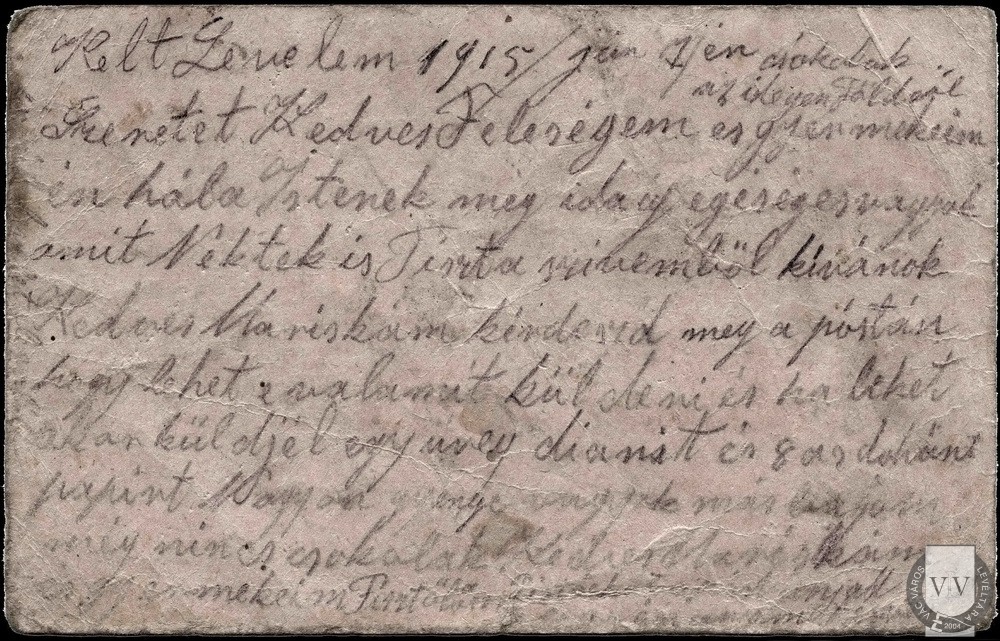 Kelt Levelem 1915/jún 7én csokolak
az idegen Földről
Szeretet Kedves Feleségem es gyermekeim
én hála Istenek még idáig egéséges vagyok
amit Nektek is Tiszta szivemből kívánok
Kedves Mariskám kérdezd meg a póstán
hogy lehet e valamit kül deni és ha lehet
akor küldjél egy üveg dianát és 8 as dohánt
papirt Nagyon gyenge vagyok más bajom
még nincs csokolak Kedves Mariskám
gyermekeim Tisztölöm
VÁC VÁROS LEVÉLTÁRA
VV
2004